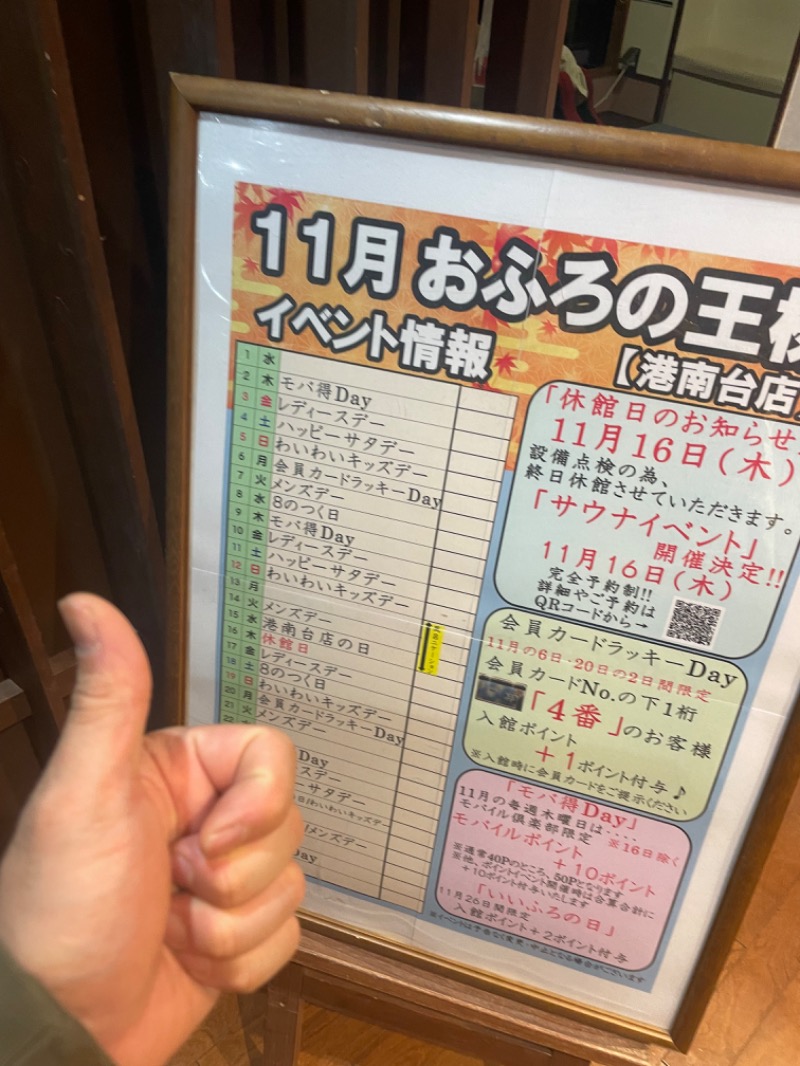 11月 おふろの王様
イベント情報
【港南台店
1 水
2 木 モバ得Day
3 金 レディースデー
4 土 ハッピーサタデー
5 日 わいわいキッズデー
6 月 会員カードラッキーDay
7 火 メンズデー
8 水 8のつく日
9 木 モバ得Day
10 金 レディースデー
11 土 ハッピーサタデー
12 日 わいわいキッズデー
13 月
14 火 メンズデー
15 水 港南台店の日
16 木 休館日
17 金 レディースデー
18 土 8のつく日
19 日 わいわいキッズデー
20 月 会員カードラッキーDay
21 火 メンズデー
22
Day
スデー
ーサタデー
わいわいキッズデー
メンズデー
Day
「休館日のお知らせ
11月16日(木)
設備点検の為、
終日休館させていただきます。
「サウナイベント」
開催決定!!
11月16日(木)
完全予約制!!
詳細やご予約は
QRコードから→
会員カードラッキーDay
11月の6日・20日の2日間限定
会員カードNo.の下1桁
「4番」のお客様
入館ポイント
+1ポイント付与♪
※入館時に会員カードをご提示ください
「モバ得Day」
11月の毎週木曜日は‥‥
モバイル倶楽部限定 ※16日除く
モバイルポイント
+10ポイント
※通常40Pのところ、50Pとなります
※他、ポイントイベント開催時は合算合計に
+10ポイント付与いたします
「いいふろの日」
11月26日間限定
入館ポイント+2ポイント付与
※イベントは予告なく変更・中止となる場合がございます